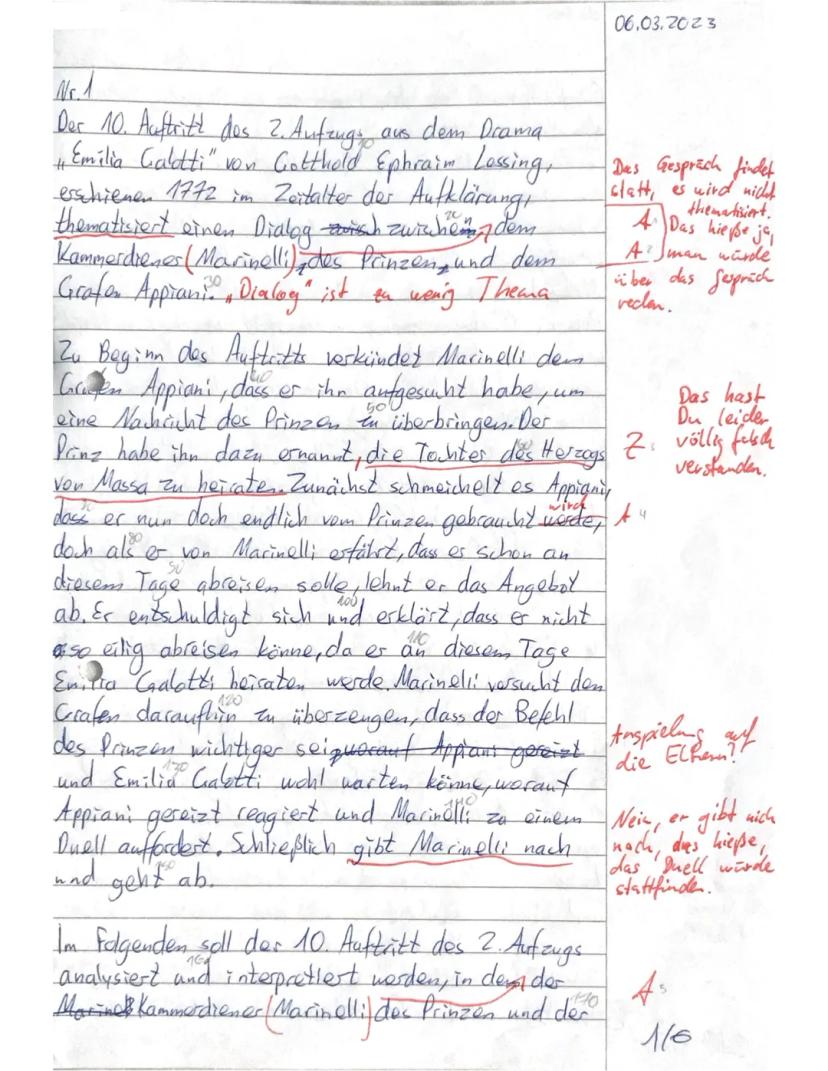 06.03.2023
Nr. 1
Der 10. Auftritt des 2. Aufzugs aus dem Drama
10
„Emilia Galotti" von Gotthold Ephraim Lessing,
erschienen 1772 im Zeitalter der Aufklärung,
thematisiert einen Dialog zwisch zwischen dem
20
Kammerdiener (Marinelli) des Prinzen und dem
Grafen Appiani. „Dialog" ist zu wenig Thema
30
Das Gespräch findet
statt, es wird nicht
thematisiert.
A 1 Das hieße ja,
A 2 man würde
über das Gespräch
reden.
Zu Beginn des Auftritts verkündet Marinelli dem
Grafen Appiani, dass er ihn aufgesucht habe, um
40
eine Nachricht des Prinzen zu überbringen. Der
50
Prinz habe ihn dazu ernannt, die Tochter des Herzogs
60
von Massa zu heiraten. Zunächst schmeichelt es Appiani,
dass er nun doch endlich vom Prinzen gebraucht werde, wird
70
doch als er von Marinelli erfährt, dass es schon an
80
diesem Tage abreisen solle, lehnt er das Angebot
90
ab. Er entschuldigt sich und erklärt, dass er nicht
100
so eilig abreisen könne, da er an diesem Tage
110
Emilia Galotti heiraten werde. Marinelli versucht den
Grafen daraufhin zu überzeugen, dass der Befehl
120
des Prinzen wichtiger sei worauf Appiani gereizt
und Emilia Galotti wohl warten könne, worauf
130
Appiani gereizt reagiert und Marinelli zu einem
140
Duell auffordert. Schließlich gibt Marinelli nach
und geht ab.
150
Das hast
Du leider
Z 3 völlig falsch
verstanden.
A 4
Anspielung auf
die Eltern?
Nein, er gibt nich
nach, das hieße,
das Duell würde
stattfinden.
Im Folgenden soll der 10. Auftritt des 2. Aufzugs
analysiert und interpretiert werden, in dem der
160
Marinel Kammerdiener (Marinelli) des Prinzen und der
170
A 5
1/6